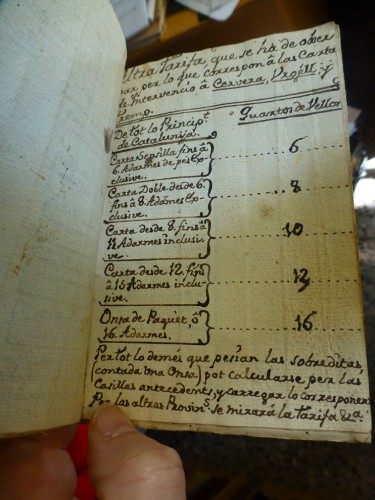 Altra Tarifa, que se há de obser
var, per lo que correspon â las Carta
de Intervenció â Cervera, Urgell, y
Tremp.
De tot lo Princip.t
de Catalunÿa.
Quartos de Vellon
Carta Sensilla fins â
6. Adarmes de pes Ex-
clusive.
6
Carta Doble desde 6.
fins â 8. Adarmes Ex-
clusive.
8
Carta desde 8. fins â
11 Adarmes inclusi-
ve.
10
Carta desde 12. fins
â 15 Adarmes inclu-
sive.
13
Onsa de Paquet, ô
16. Adarmes.
16
Per tot lo demés que pesian las sobreditas
(contada una Onsa) pot calcularse per las
Casillas antecedents, y carregar lo corresponen
Per las altras Provin.s se mirará la Tarifa &.a